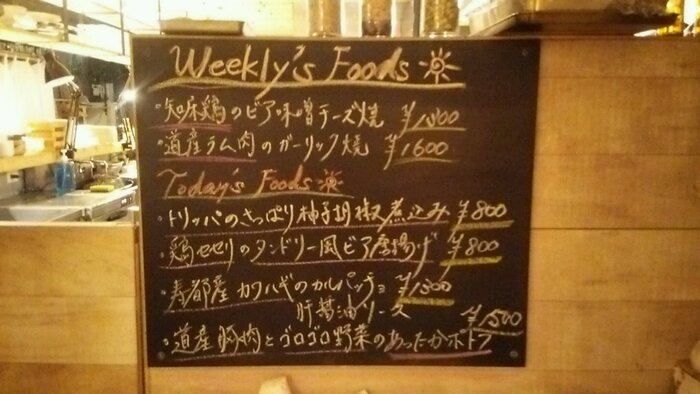 Weekly's Foods
・知床鶏のビア味噌チーズ焼 ¥1300
・道産ラム肉のガーリック焼 ¥1600
Today's Foods
・トリッパのさっぱり柚子胡椒煮込み ¥800
・鶏セセリのタンドリー風ビア唐揚げ ¥800
・寿都産カワハギのカルパッチョ ¥1300
肝醤油ソース
・道産豚肉とゴロゴロ野菜のあったかポトフ ¥1500